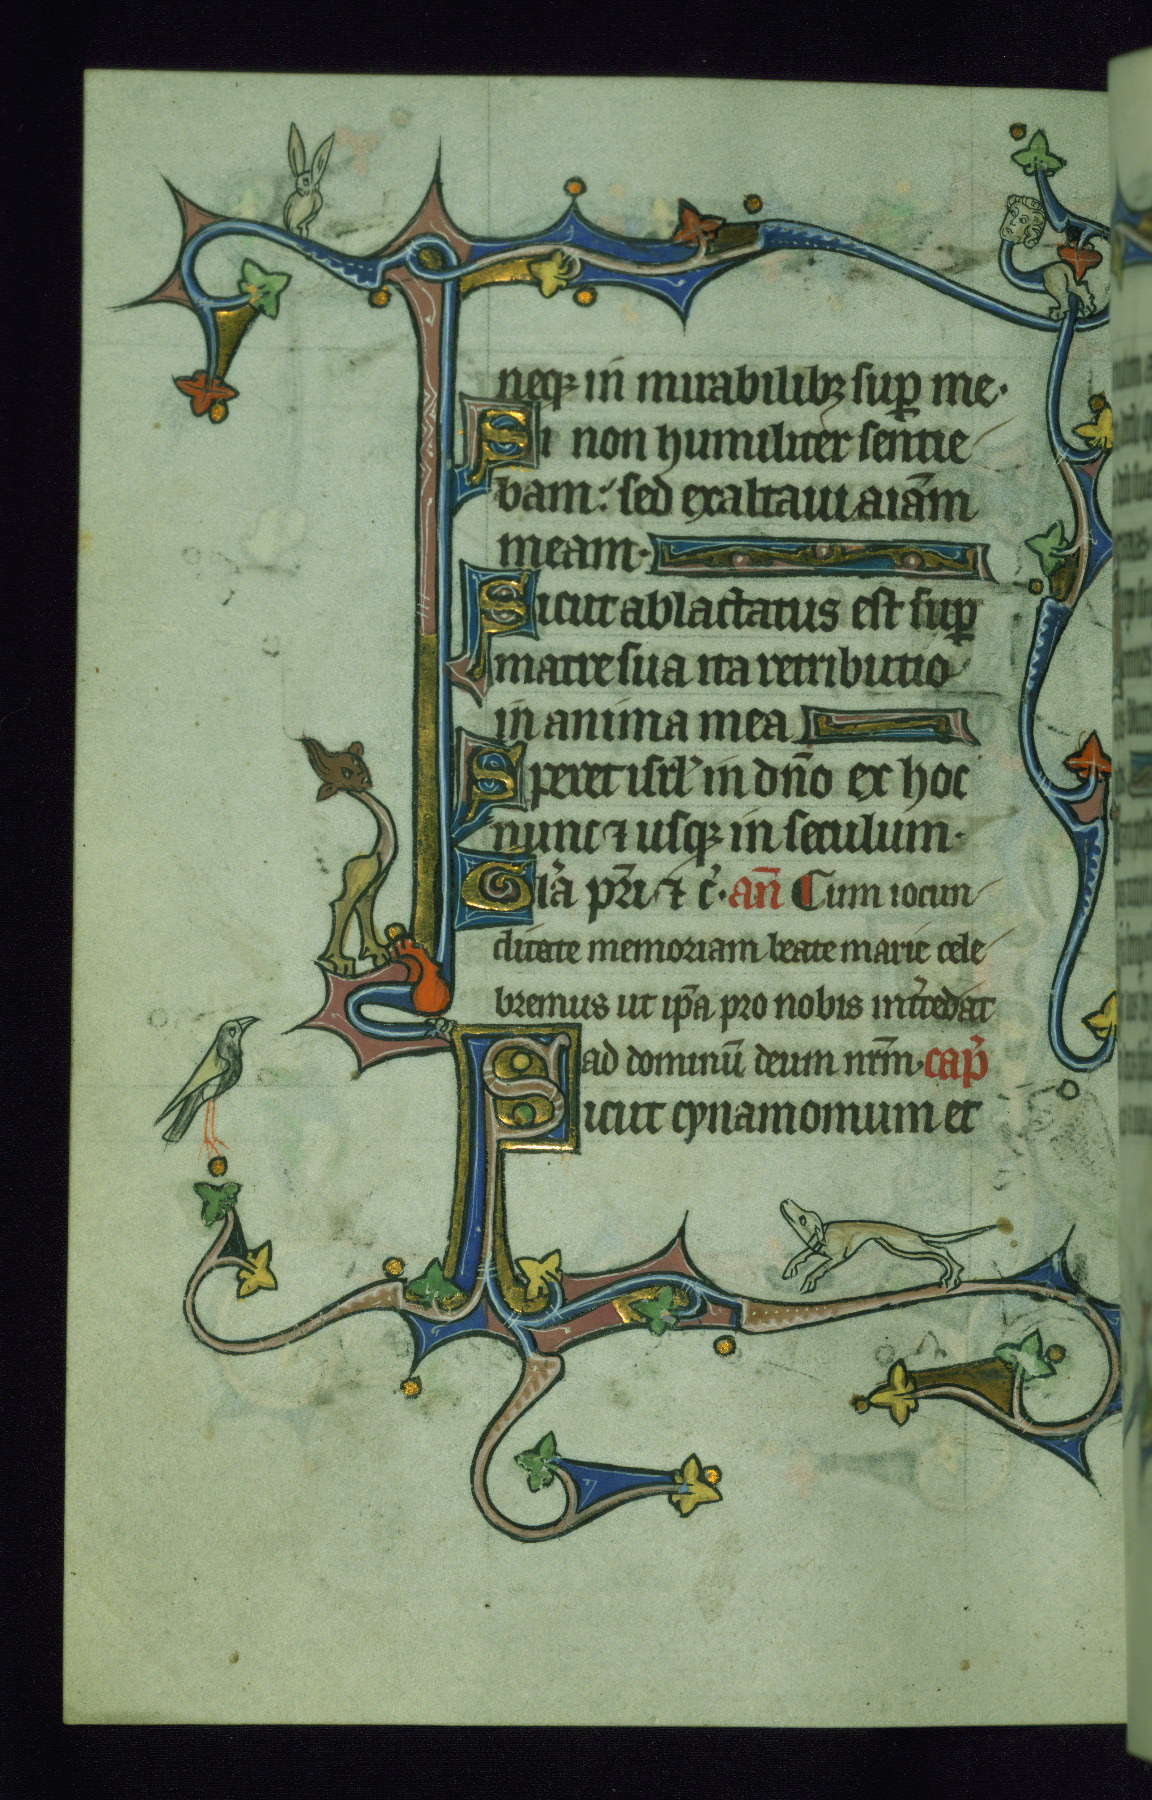 neq; in mirabilibꝫ suꝑ me·
Si non humiliter sentie
bam: sed exaltaui aīam
meam·
Sicut ablactatus est suꝑ
matre sua ita retributio
in anima mea
Speret isrl' in dn̄o ex hoc
nunc ⁊ usq; in seculum·
Gl'a pr̄i ⁊ c'· an̄ Cum iocun
ditate memoriam beate marie cele
bremus ut ip̄a pro nobis int'cedat
ad dominū deum nr̄m· cap̄
Sicut cynamomum et